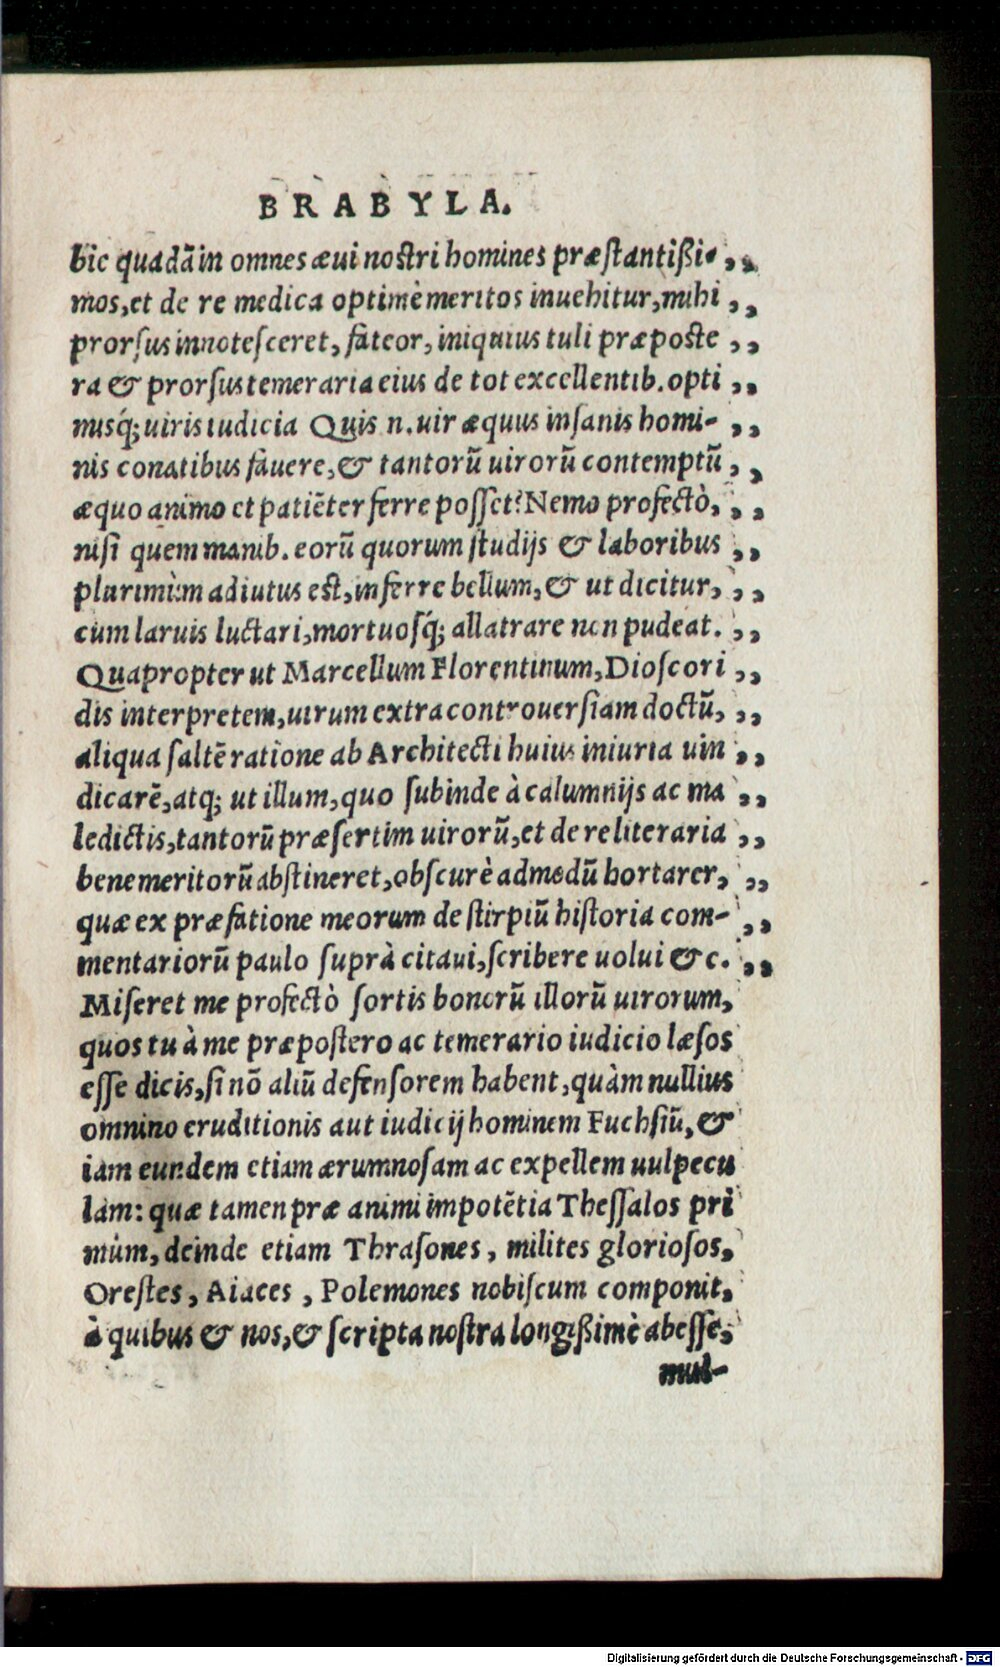 BRABYLA.
bic quadā in omnes æui nostri homines præstantißi- ,,
mos, et de re medica optimè meritos inuehitur, mihi ,,
prorsus innotesceret, fateor, iniquius tuli præpostе ,,
ra & prorsus temeraria eius de tot excellentib. opti ,,
misq́; uiris iudicia Quis n. uir æquus insanis homi- ,,
nis conatibus fauere, & tantorū uirorū contemptū ,,
æquo animo et patiēter ferre posset? Nemo profectò, ,,
nisi quem manib. eorū quorum studijs & laboribus ,,
plurimùm adiutus est, inferre bellum, & ut dicitur, ,,
cum laruis luctari, mortuosq́; allatrare non pudeat. ,,
Quapropter ut Marcellum Florentinum, Dioscori ,,
dis interpretem, uirum extra controuersiam doctū, ,,
aliqua saltē ratione ab Architecti huius iniuria uin ,,
dicarē, atq; ut illum, quo subinde à calumnijs ac ma ,,
ledictis, tantorū præsertim uirorū, et de re literaria ,,
benemeritorū abstineret, obscurè admodū hortarer, ,,
quæ ex præfatione meorum de stirpiū historia com- ,,
mentariorū paulo suprà citaui, scribere uolui &c. ,,
Miseret me profectò sortis bonorū illorū uirorum,
quos tu à me præpostero ac temerario iudicio læsos
esse dicis, si nō aliū defensorem habent, quàm nullius
omnino eruditionis aut iudicij hominem Fuchsiū, &
iam eundem etiam ærumnosam ac expellem uulpecu
lam: quæ tamen præ animi impotētia Thessalos pri
mùm, deinde etiam Thrasones, milites gloriosos,
Orestes, Aiaces, Polemones nobiscum componit,
à quibus & nos, & scripta nostra longißimè abesse,
mul-
Digitalisierung gefördert durch die Deutsche Forschungsgemeinschaft - DFG